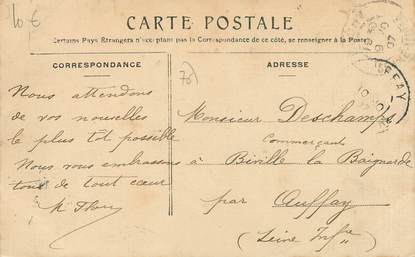 10 €
CARTE POSTALE
Certains Pays Etrangers n'acceptant pas la Correspondance de ce côté, se renseigner à la Poste
CORRESPONDANCE
ADRESSE
Nous attendons
de vos nouvelles
le plus tôt possible
Nous vous embrassons
tous de tout cœur
Monsieur Deschamps
Commerçant
à Biville la Baignarde
par Auffay
(Seine Infre)